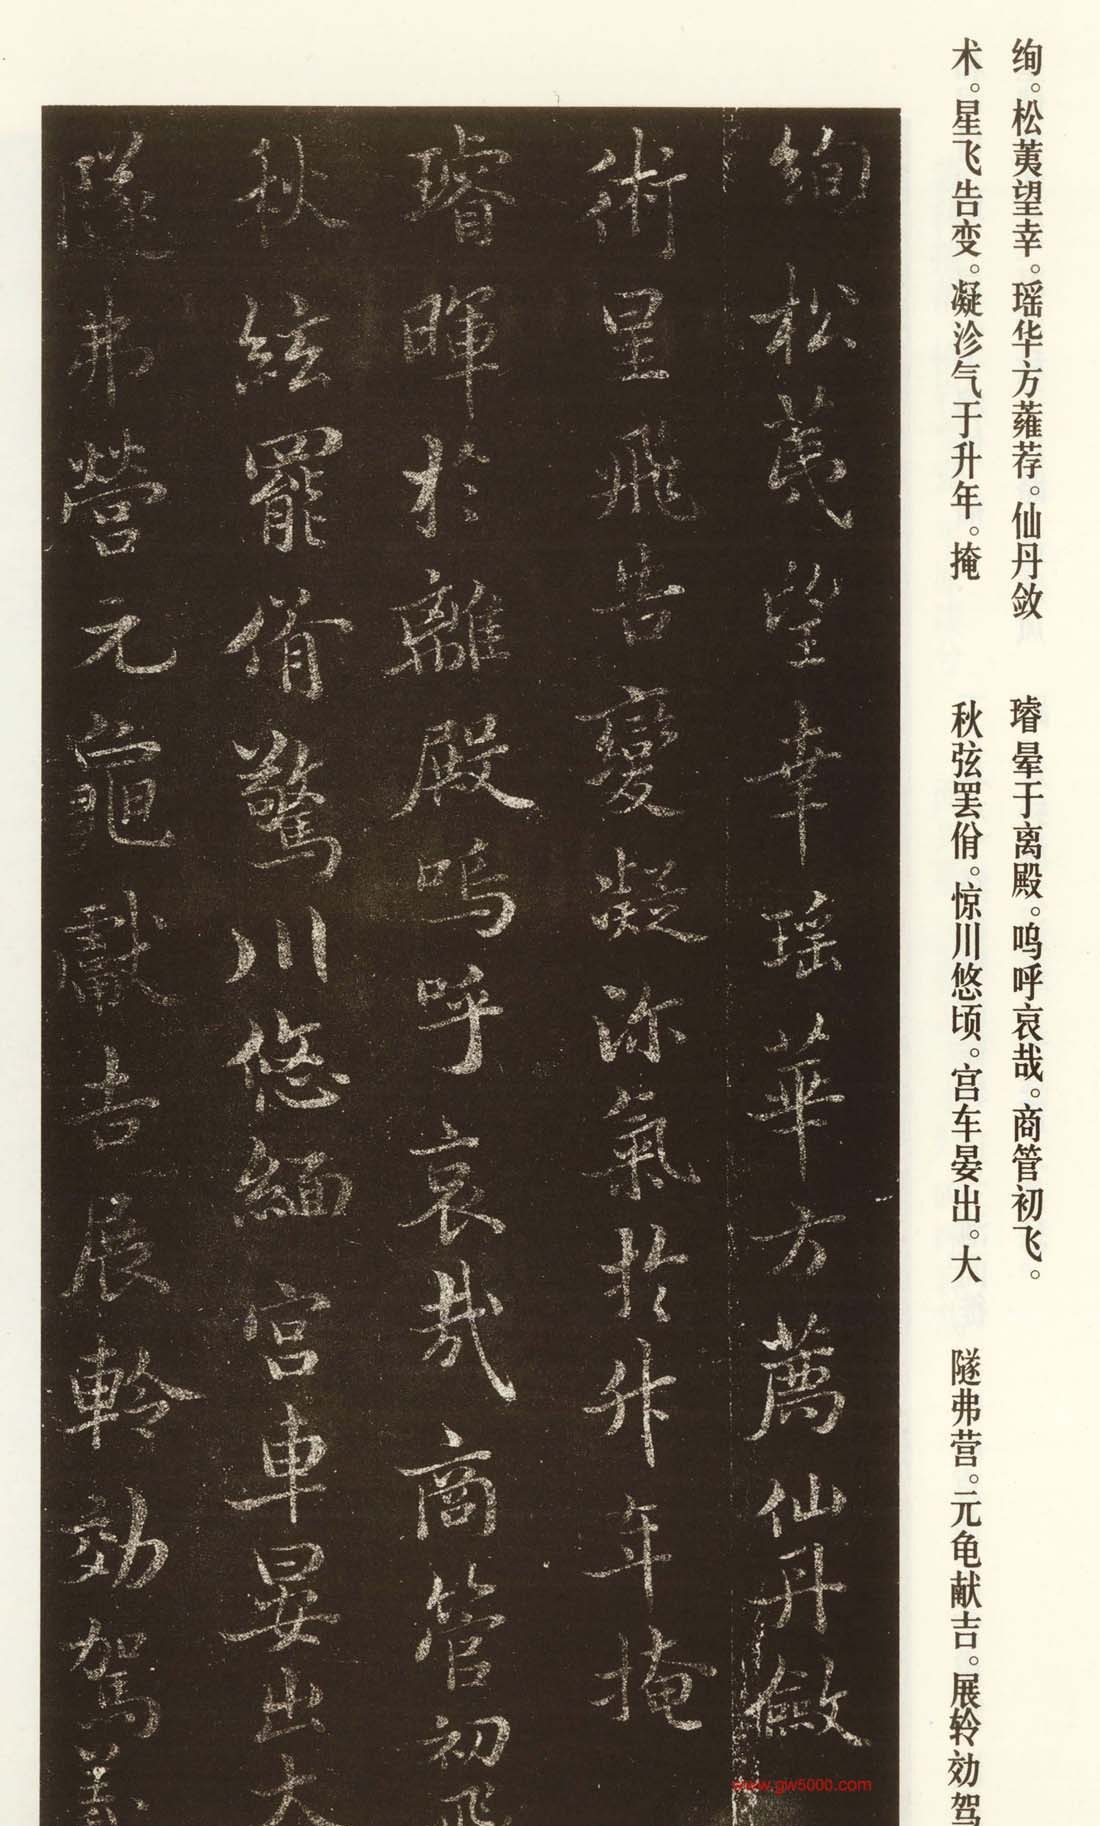 绚。松荑望幸。瑶华方蕹荐。仙丹敛
术。星飞告变。凝沴气于升年。掩
璿晕于离殿。呜呼哀哉。商管初飞。
秋弦罢佾。惊川悠顷。宫车晏出。大
隧弗营。元龟献吉。展𫐉効驾
絢松荑望幸瑶華方薦仙丹斂
術星飛告變凝沴氣於升年掩
璿暉於離殿嗚呼哀哉商管初飛
秋絃罷佾驚川悠緬宫車晏出大
隧弗營元龜獻吉展軨効駕
www.giw5000.com